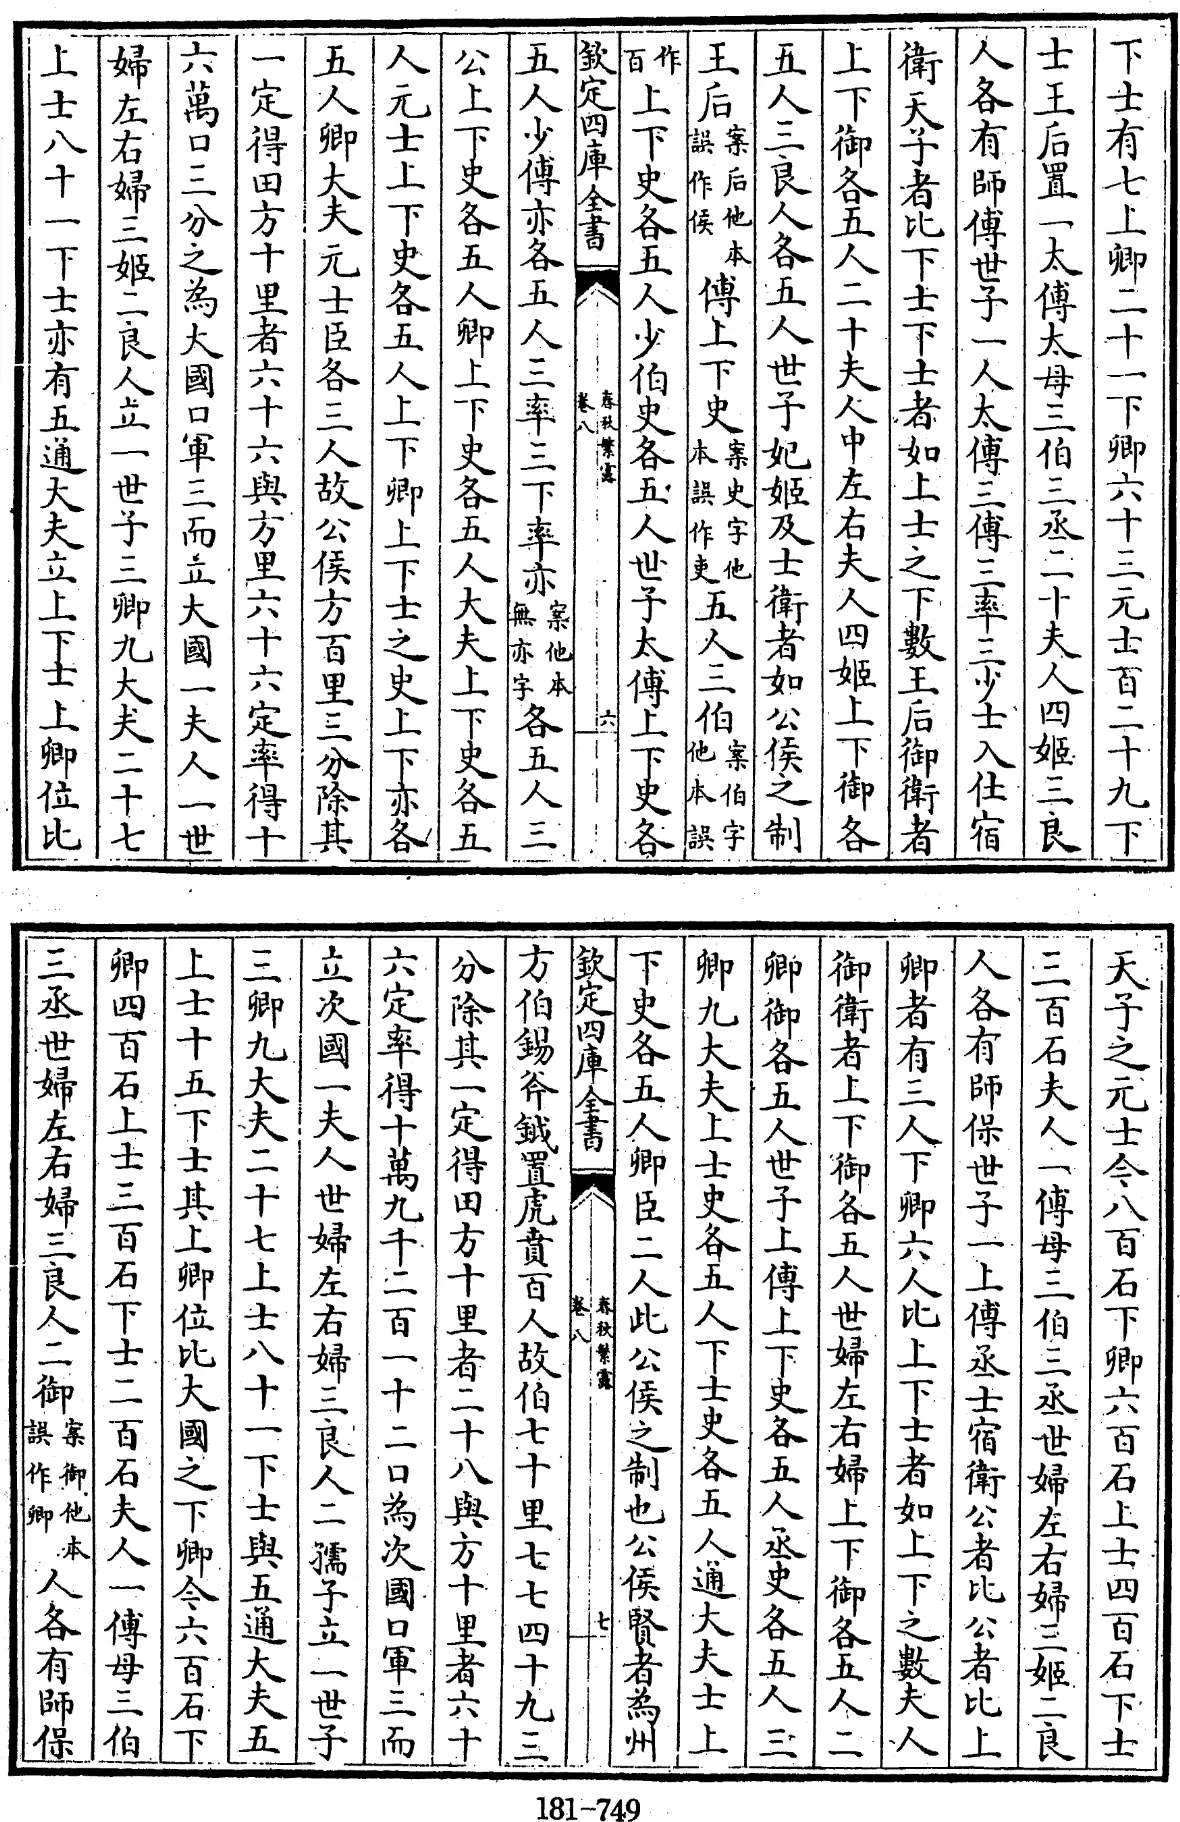 下士有七上卿二十一下卿六十三元士百二十九下
士王后置一太傅太母三伯三丞二十夫人四姬三良
人各有師傅世子一人太傅三傅三率三少士入仕宿
衛天子者比下士下士者如上士之下數王后御衛者
上下御各五人二十夫人中左右夫人四姬上下御各
五人三良人各五人世子妃姬及士衛者如公侯之制
王后案后他本誤作侯傅上下史案史字他本誤作吏五人三伯案伯字他本誤
作百上下史各五人少伯史各五人世子太傅上下史各
欽定四庫全書
春秋繁露
卷八
六
五人少傅亦各五人三率三下率亦案他本無亦字各五人三
公上下史各五人卿上下史各五人大夫上下史各五
人元士上下史各五人上下卿上下士之史上下亦各
五人卿大夫元士臣各三人故公侯方百里三分除其
一定得田方十里者六十六與方里六十六定率得十
六萬口三分之為大國口軍三而立大國一夫人一世
婦左右婦三姬二良人立一世子三卿九大夫二十七
上士八十一下士亦有五通大夫立上下士上卿位比
天子之元士今八百石下卿六百石上士四百石下士
三百石夫人一傅母三伯三丞世婦左右婦三姬二良
人各有師保世子一上傅丞士宿衛公者比公者比上
卿者有三人下卿六人比上下士者如上下之數夫人
御衛者上下御各五人世婦左右婦上下御各五人二
卿御各五人世子上傅上下史各五人丞史各五人三
卿九大夫上士史各五人下士史各五人通大夫士上
下史各五人卿臣二人此公侯之制也公侯賢者為州
欽定四庫全書
春秋繁露
卷八
七
方伯錫斧鉞置虎賁百人故伯七十里七七四十九三
分除其一定得田方十里者二十八與方十里者六十
六定率得十萬九千二百一十二口為次國口軍三而
立次國一夫人世婦左右婦三良人二孺子立一世子
三卿九大夫二十七上士八十一下士與五通大夫五
上士十五下士其上卿位比大國之下卿今六百石下
卿四百石上士三百石下士二百石夫人一傅母三伯
三丞世婦左右婦三良人二御案御他本誤作卿人各有師保
181-749